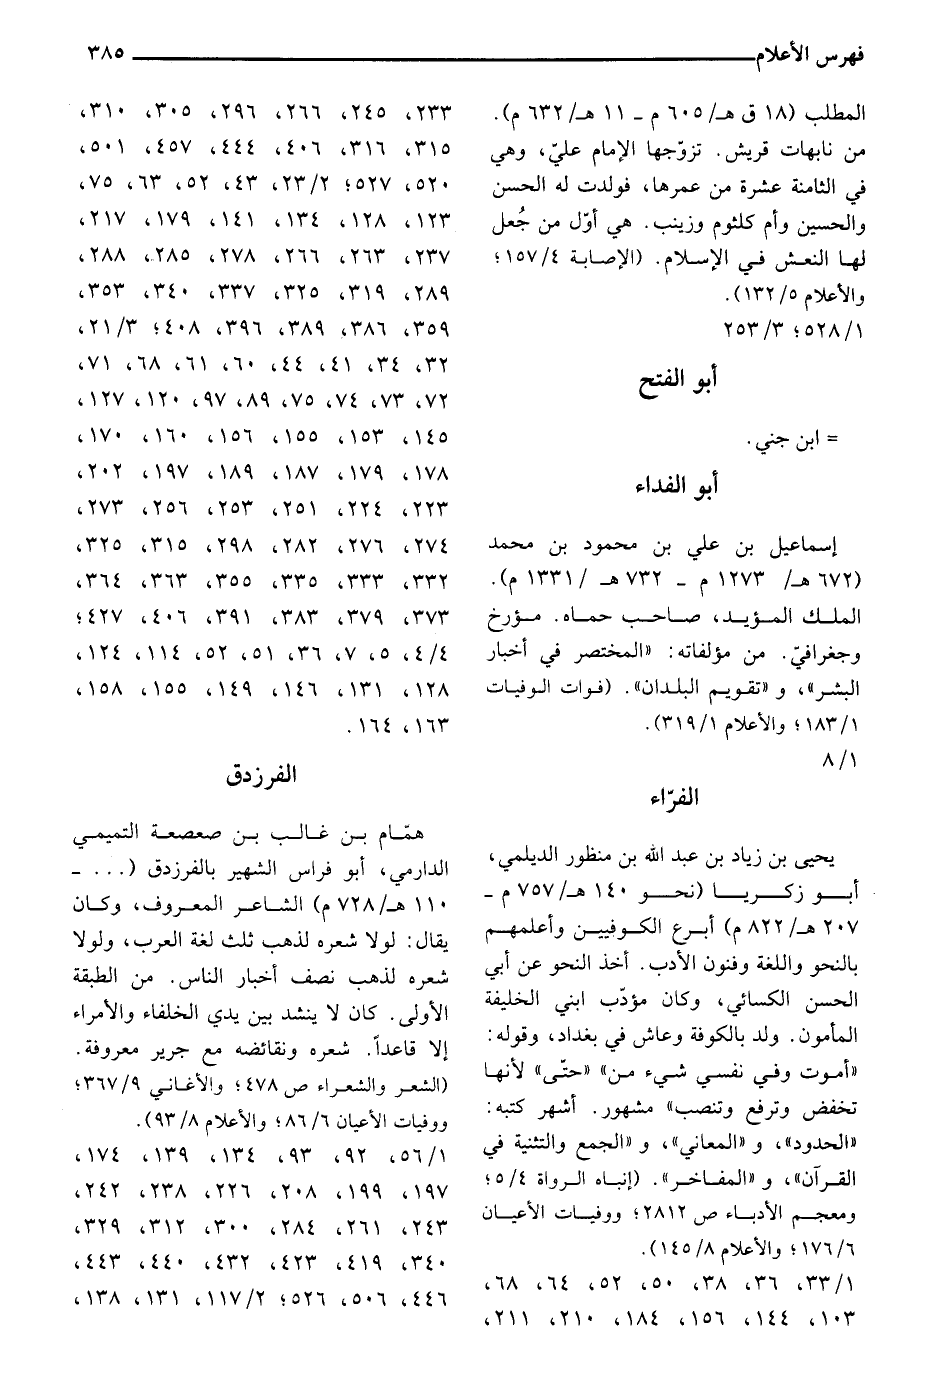 فهرس الأعلام ٣٨٥
المطلب (١٨ ق هـ/ ٦٠٥ م ـ ١١ هـ/ ٦٣٢ م).
من نابهات قريش. تزوّجها الإمام عليّ، وهي
في الثامنة عشرة من عمرها، فولدت له الحسن
والحسين وأم كلثوم وزينب. هي أوّل من جُعل
لها النعش في الإسلام. (الإصابة ٤/ ١٥٧؛
والأعلام ٥/ ١٣٢).
١/ ٥٢٨؛ ٣/ ٢٥٣
أبو الفتح
= ابن جني.
أبو الفداء
إسماعيل بن علي بن محمود بن محمد
(٦٧٢ هـ/ ١٢٧٣ م ـ ٧٣٢ هـ / ١٣٣١ م).
الملك المؤيد، صاحب حماه. مؤرخ
وجغرافيّ. من مؤلفاته: «المختصر في أخبار
البشر»، و «تقويم البلدان». (فوات الوفيات
١/ ١٨٣؛ والأعلام ١/ ٣١٩).
١/ ٨
الفرّاء
يحيى بن زياد بن عبد الله بن منظور الديلمي،
أبو زكريا (نحو ١٤٠ هـ/ ٧٥٧ م ـ
٢٠٧ هـ/ ٨٢٢ م) أبرع الكوفيين وأعلمهم
بالنحو واللغة وفنون الأدب. أخذ النحو عن أبي
الحسن الكسائي، وكان مؤدّب ابني الخليفة
المأمون. ولد بالكوفة وعاش في بغداد، وقوله:
«أموت وفي نفسي شيء من» «حتّى» لأنها
تخفض وترفع وتنصب» مشهور. أشهر كتبه:
«الحدود»، و «المعاني»، و «الجمع والتثنية في
القرآن»، و «المفاخر». (إنباه الرواة ٤/ ٥؛
ومعجم الأدباء ص ٢٨١٢؛ ووفيات الأعيان
٦/ ١٧٦؛ والأعلام ٨/ ١٤٥).
١/ ٣٣، ٣٦، ٣٨، ٥٠، ٥٢، ٦٤، ٦٨،
١٠٣، ١٤٤، ١٥٦، ١٨٤، ٢١٠، ٢١١،
٢٣٣، ٢٤٥، ٢٦٦، ٢٩٦، ٣٠٥، ٣١٠،
٣١٥، ٣١٦، ٤٠٦، ٤٤٤، ٤٥٧، ٥٠١،
٥٢٠، ٥٢٧؛ ٢/ ٢٣، ٤٣، ٥٢، ٦٣، ٧٥،
١٢٣، ١٢٨، ١٣٤، ١٤١، ١٧٩، ٢١٧،
٢٣٧، ٢٦٣، ٢٦٦، ٢٧٨، ٢٨٥، ٢٨٨،
٢٨٩، ٣١٩، ٣٢٥، ٣٣٧، ٣٤٠، ٣٥٣،
٣٥٩، ٣٨٦، ٣٨٩، ٣٩٦، ٤٠٨؛ ٣/ ٢١،
٣٢، ٣٤، ٤١، ٤٤، ٦٠، ٦١، ٦٨، ٧١،
٧٢، ٧٣، ٧٤، ٧٥، ٨٩، ٩٧، ١٢٠، ١٢٧،
١٤٥، ١٥٣، ١٥٥، ١٥٦، ١٦٠، ١٧٠،
١٧٨، ١٧٩، ١٨٧، ١٨٩، ١٩٧، ٢٠٢،
٢٢٣، ٢٢٤، ٢٥١، ٢٥٣، ٢٥٦، ٢٧٣،
٢٧٤، ٢٧٦، ٢٨٢، ٢٩٨، ٣١٥، ٣٢٥،
٣٣٢، ٣٣٣، ٣٣٥، ٣٥٥، ٣٦٣، ٣٦٤،
٣٧٣، ٣٧٩، ٣٨٣، ٣٩١، ٤٠٦، ٤٢٧؛
٤/ ٤، ٥، ٧، ٣٦، ٥١، ٥٢، ١١٤، ١٢٤،
١٢٨، ١٣١، ١٤٦، ١٤٩، ١٥٥، ١٥٨،
١٦٣، ١٦٤.
الفرزدق
همّام بن غالب بن صعصعة التميمي
الدارمي، أبو فراس الشهير بالفرزدق (... ـ
١١٠ هـ/ ٧٢٨ م) الشاعر المعروف، وكان
يقال: لولا شعره لذهب ثلث لغة العرب، ولولا
شعره لذهب نصف أخبار الناس. من الطبقة
الأولى. كان لا ينشد بين يدي الخلفاء والأمراء
إلا قاعداً. شعره ونقائضه مع جرير معروفة.
(الشعر والشعراء ص ٤٧٨؛ والأغاني ٩/ ٣٦٧؛
ووفيات الأعيان ٦/ ٨٦؛ والأعلام ٨/ ٩٣).
١/ ٥٦، ٩٢، ٩٣، ١٣٤، ١٣٩، ١٧٤،
١٩٧، ١٩٩، ٢٠٨، ٢٢٦، ٢٣٨، ٢٤٢،
٢٤٣، ٢٦١، ٢٨٤، ٣٠٠، ٣١٢، ٣٢٩،
٣٤٠، ٤١٩، ٤٢٣، ٤٣٢، ٤٤٠، ٤٤٣،
٤٤٦، ٥٠٦، ٥٢٦؛ ٢/ ١١٧، ١٣١، ١٣٨،